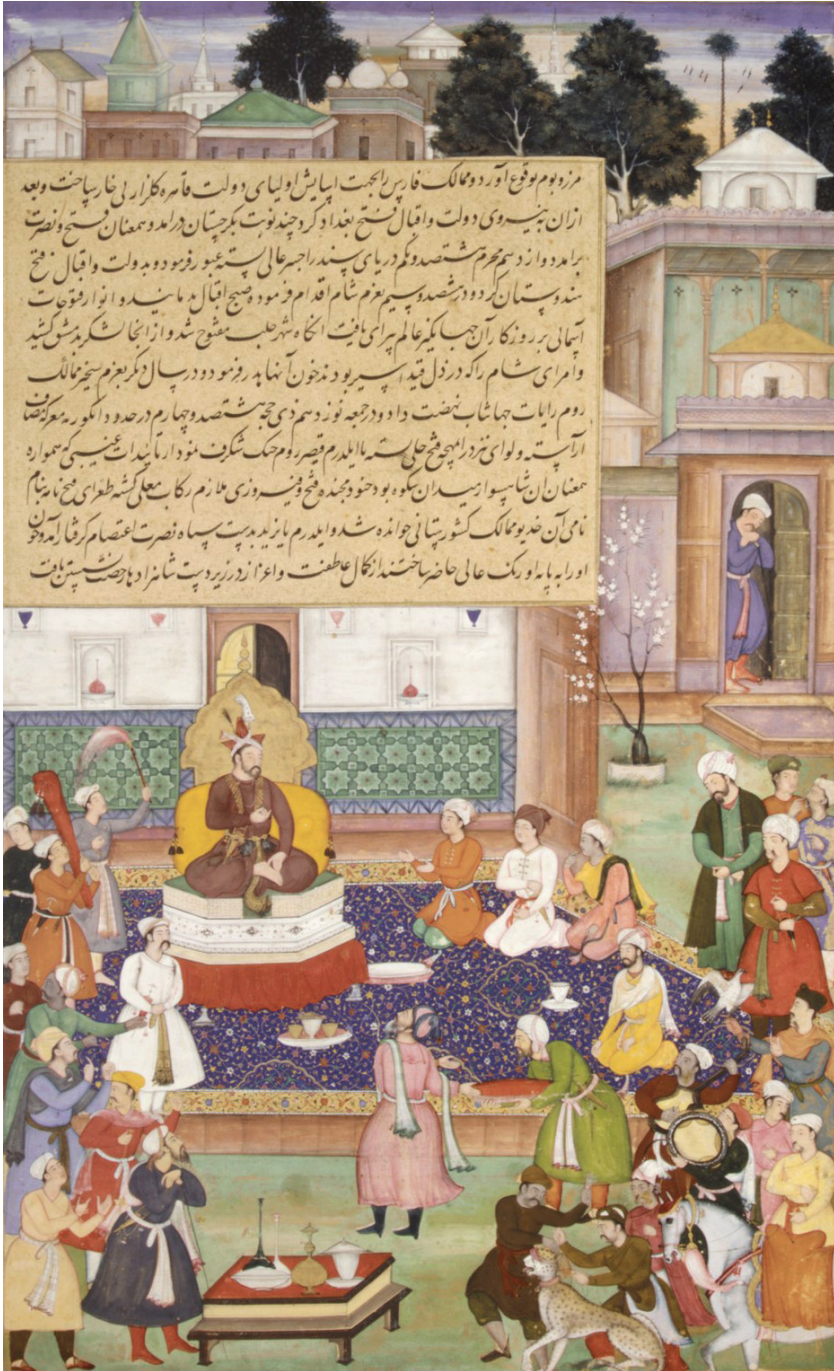 مرز و بوم بوقوع آورد و ممالک فارس را بجهت آسایش اولیای دولت قاهره کلزار بی خار ساخت و بعد
ازان به نیروی دولت و اقبال فتح بغداد کرد چند نوبت بکرجستان درامد و همعنان فتح و نصرت
برامد دوازدهم محرم هشتصد ویکم دریای سند را جسر عالی بسته عبور فرمود و بدولت و اقبال فتح
هندوستان کرد و در هشتصد و سیم بعزم شام اقدام فرموده صبح اقبال بدمانید و انوار فتوحات
آسمانی بر روزکار آن جهانگیر عالم پیرای تافت انکاه شهر حلب مفتوح شد و از انجا لشکر بدمشق کشید
و امرای شام را که در ذل قید اسیر بودند خون آنها بدر فرمود و در سال دیگر بعزم تسخیر ممالک
روم رایات جهانتاب نهضت داد و در جمعه نوزدهم ذی حجه هشتصد و چهارم در حدود انکوریه معرکه مصاف
آراسته و لوای نبرد را مهجه فتح جلی بسته با ایلدرم قیصر روم جنک شکرف نمود از تاییدات غیبی که همواره
همعنان آن شاهسوار میدان شکوه بود جنود مجنده فتح و فیروزی ملازم رکاب معلی کشته طغرای فتح نامه بنام
نامی آن خدیو ممالک کشورستانی خوانده شد و ایلدرم بایزید بدست سپاه نصرت اعتصام کرفتار آمد و چون
او را به پایه اورنک عالی حاضر ساختند از کمال عاطفت و اعزاز در زیر دست شاهزادها رخصت نشستن یافت